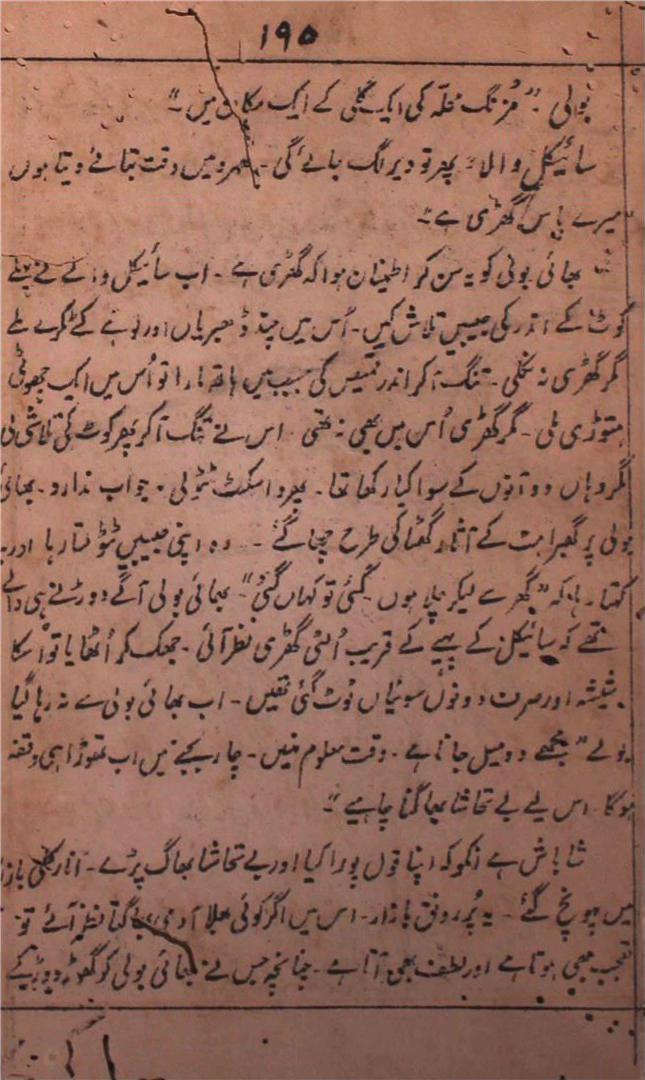 ۱۹۵
بولی ۔" مُزنگ محلّہ کی ایک گلی کے ایک مکان میں ۔"
سائیکل والا ۔ پھر تو دیر لگ جائے گی ۔ ٹھہرو میں وقت بتائے دیتا ہوں
میرے پاس گھڑی ہے ۔"
بھائی بولی کو یہ سن کر اطمینان ہوا کہ گھڑی ہے ۔ اب سائیکل والے نے پہلے
کوٹ کے اندر کی جیبیں تلاش کیں ۔ اُس میں چند ڈھبریاں اور لوہے کے ٹکڑے ملے
مگر گھڑی نہ نکلی ۔ تنگ آکر اندر قمیص کی جیب میں ہاتھ مارا تو اُس میں ایک چھوٹی
ہتوڑی ملی ۔ مگر گھڑی اُس میں بھی نہ تھی ۔ اس نے تنگ آکر پھر کوٹ کی تلاشی لی
مگر وہاں دو آنوں کے سوا کیا رکھا تھا ۔ پھر واسکٹ ٹٹولی ۔ جواب ندارد ۔ بھائی
بولی پر گھبراہٹ کے آثار گھٹا کی طرح چھا گئے ۔ وہ اپنی جیبیں ٹٹولتا رہا اور یہ
کہتا رہا کہ "گھر سے لیکر چلا ہوں ۔ گئی تو کہاں گئی" ۔ بھائی بولی آگے دوڑنے ہی والے
تھے کہ سائیکل کے پہیے کے قریب اُلٹی گھڑی نظر آئی ۔ جھک کر اُٹھایا تو اسکا
شیشہ اور صرف دونوں سوئیاں ٹوٹ گئی تھیں ۔ اب بھائی بولی سے نہ رہا گیا
بولے "مجھے دو میل جانا ہے ۔ وقت معلوم نہیں ۔ چار بجنے میں اب تھوڑا ہی وقفہ
ہوگا ۔ اس لیے بے تحاشا بھاگنا چاہیے ۔"
شاباش ہے انکو کہ اپنا قول پورا کیا اور بے تحاشا بھاگ پڑے ۔ انارکلی بازار
میں پہونچ گئے ۔ یہ پُر رونق بازار ۔ اس میں اگر کوئی بھلا آدمی بھاگتا نظر آئے تو
تعجب بھی ہوتا ہے اور لطف بھی آتا ہے ۔ چنانچہ جس نے بھائی بولی کو گھوڑ دوڑ کے